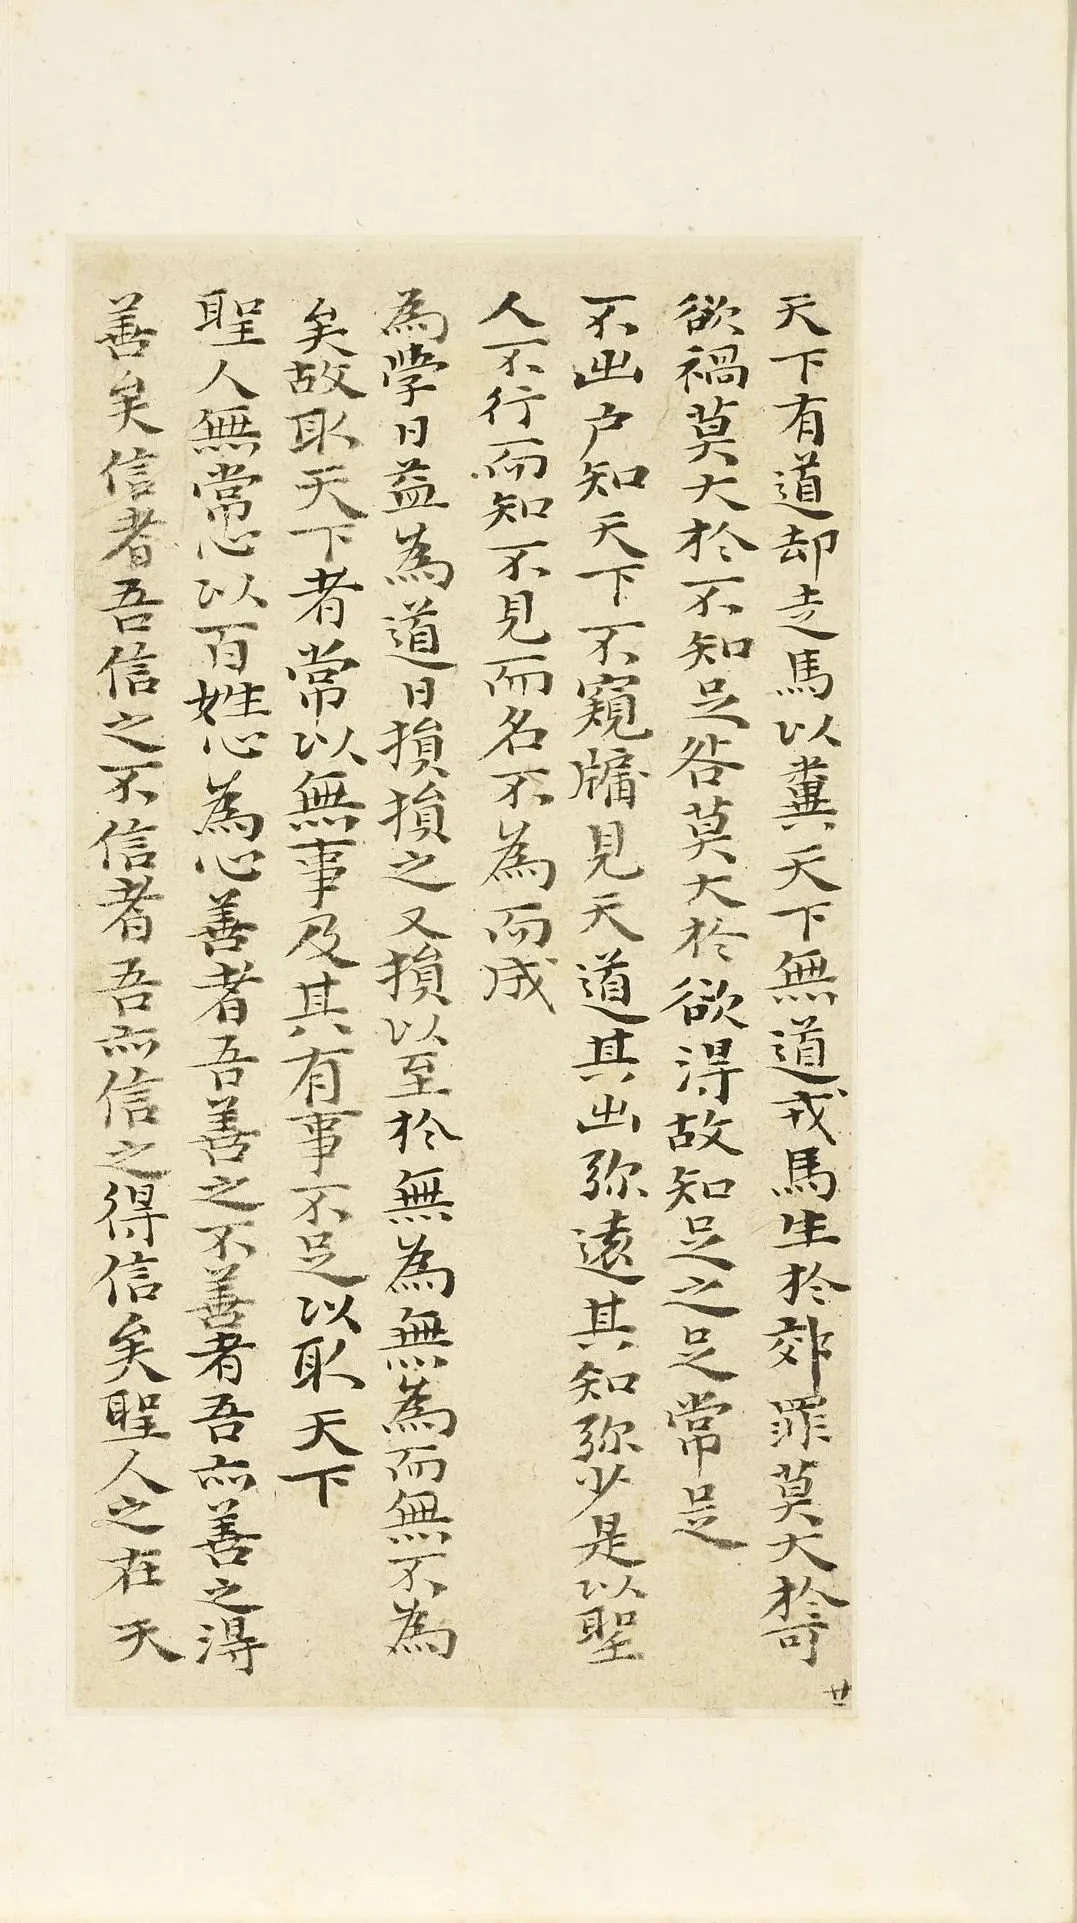 天下有道却走馬以糞天下無道戎馬生於郊罪莫大於可
欲禍莫大於不知足咎莫大於欲淂故知足之足常足
不出户知天下不窺牖見天道其出弥遠其知弥少是以聖
人不行而知不見而名不為而成
為學日益為道日損損之又損以至於無為無為而無不為
矣故取天下者常以無事及其有事不足以取天下
聖人無常心以百姓心為心善者吾善之不善者吾亦善之淂
善矣信者吾信之不信者吾亦信之得信矣聖人之在天
廿